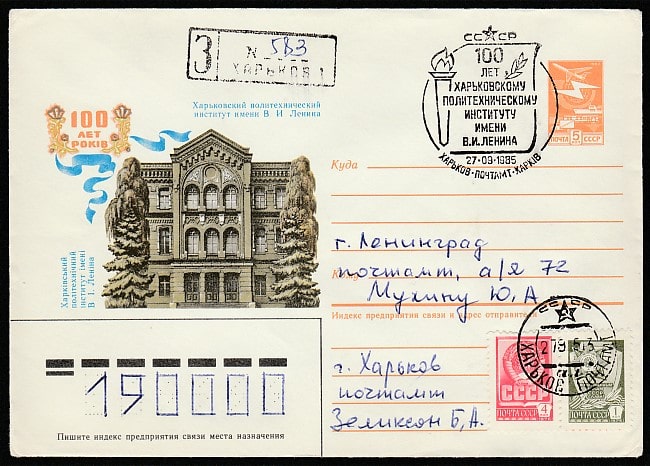 З
N 583
ХАРЬКОВ 1
СССР
100
ЛЕТ
ХАРЬКОВСКОМУ
ПОЛИТЕХНИЧЕСКОМУ
ИНСТИТУТУ
ИМЕНИ
В.И. ЛЕНИНА
27·09·1985
ХАРЬКОВ·ПОЧТАМТ·ХАРКІВ
5 к
СССР
Харьковский политехнический
институт имени В И. Ленина
100
ЛЕТ
РОКІВ
Харківський
політехнічний
інститут імені
В І. Леніна
Куда
г. Ленинград
почтамт, а/я 72
Мухину Ю, А
Индекс предприятия связи и адрес отправителя
г. Харьков
почтамт
Зеликсон Б, А.
СССР
ХАРЬКОВ ПОЧТАМТ
СССР
ПОЧТА СССР 4
ПОЧТА СССР 1
190000
Пишите индекс предприятия связи места назначения